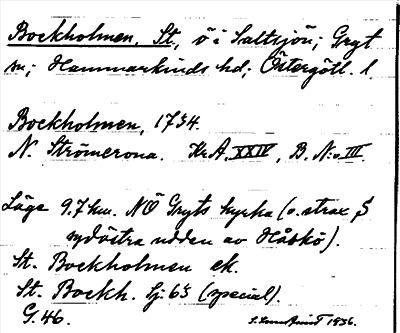 Bockholmen, St., ö i Saltsjön; Gryt
sn; Hammarkinds hd; Östergötl. l.
Bockholmen, 1734.
N. Strömcrona. Kr.A. XXIV, B. N:o III.
Läge 9.7 km. NÖ Gryts kyrka (o. strax S
sydöstra udden av Håskö).
St. Bockholmen ek.
St. Bockh. Sj. 63 (special).
G. 46.
1936.